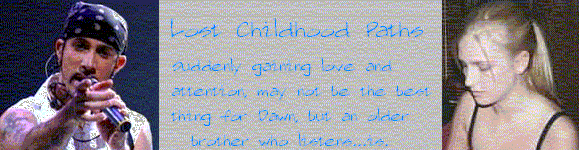 Lost Childhood Paths
Suddenly gaining love and
attention, may not be the best
thing for Dawn, but an older
brother who listens...is.